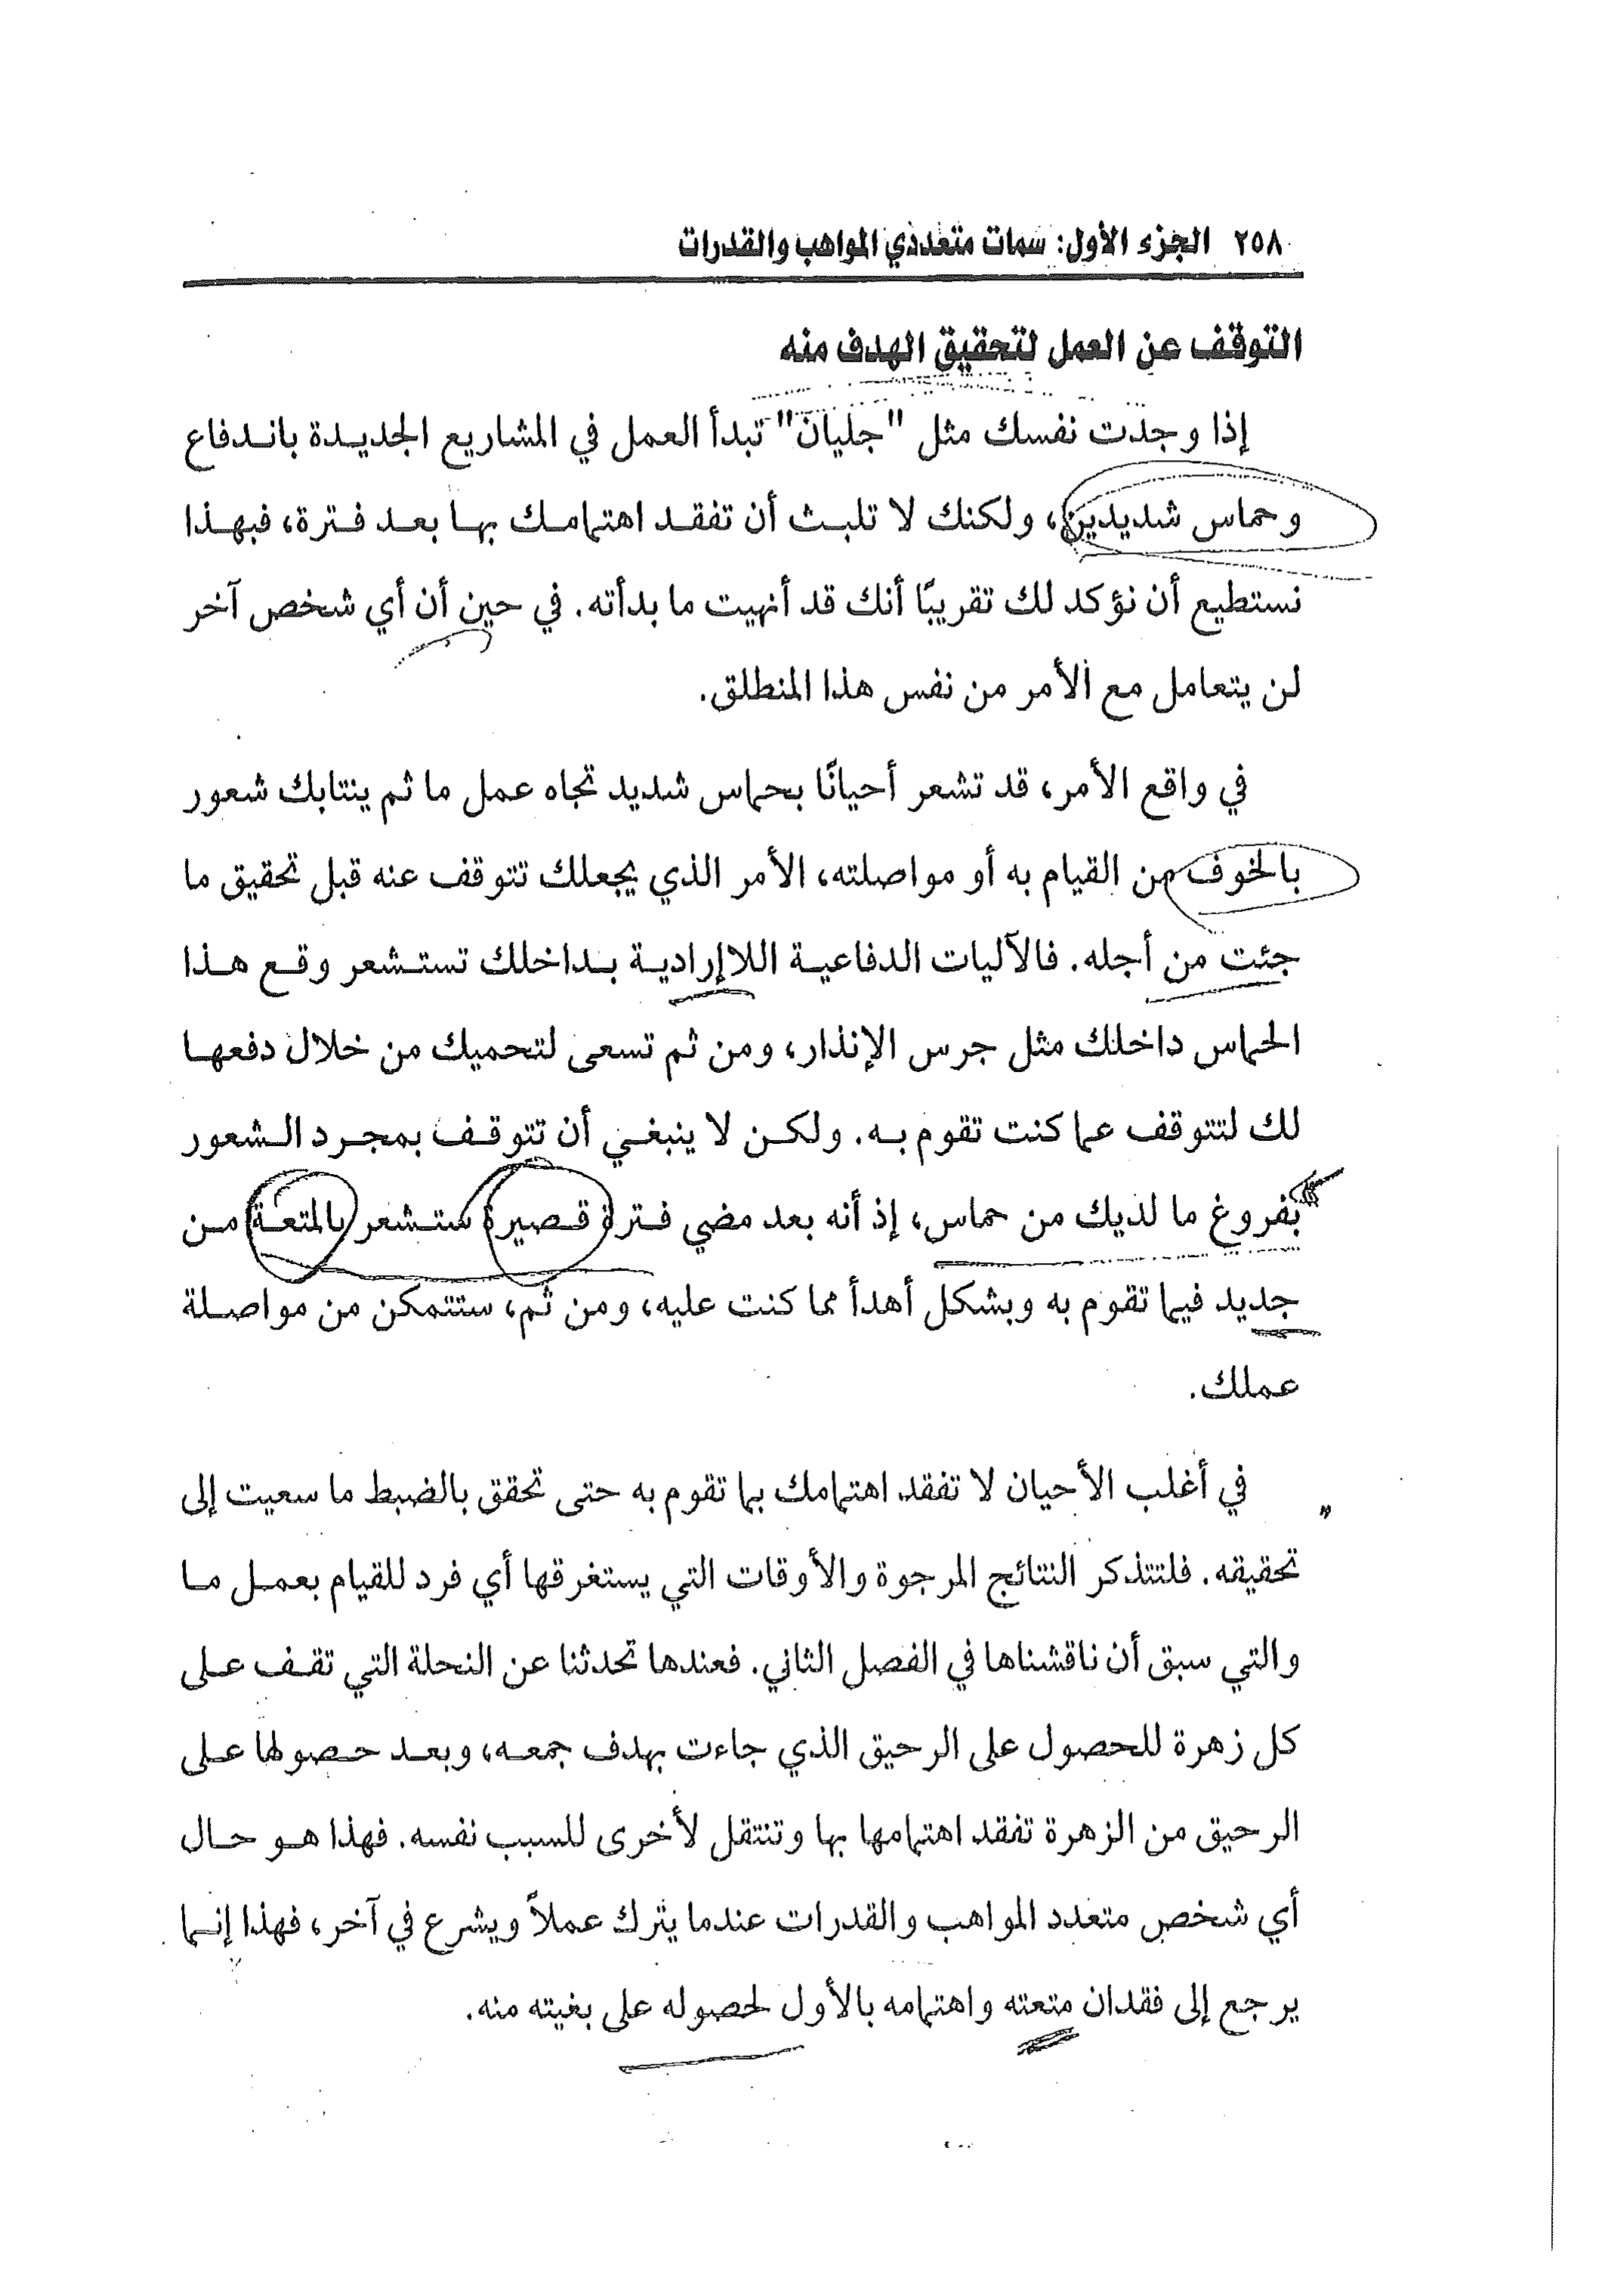 ٢٥٨ الجزء الأول: سمات متعددي المواهب والقدرات
التوقف عن العمل لتحقيق الهدف منه
إذا وجدت نفسك مثل "جليان" تبدأ العمل في المشاريع الجديدة باندفاع
وحماس شديدين، ولكنك لا تلبث أن تفقد اهتمامك بها بعد فترة، فبهذا
نستطيع أن نؤكد لك تقريبًا أنك قد أنهيت ما بدأته. في حين أن أي شخص آخر
لن يتعامل مع الأمر من نفس هذا المنطلق.
في واقع الأمر، قد تشعر أحيانًا بحماس شديد تجاه عمل ما ثم ينتابك شعور
بالخوف من القيام به أو مواصلته، الأمر الذي يجعلك تتوقف عنه قبل تحقيق ما
جئت من أجله. فالآليات الدفاعية اللاإرادية بداخلك تستشعر وقع هذا
الحماس داخلك مثل جرس الإنذار، ومن ثم تسعى لتحميك من خلال دفعها
لك لتتوقف عما كنت تقوم به. ولكن لا ينبغي أن تتوقف بمجرد الشعور
بفروغ ما لديك من حماس، إذ أنه بعد مضي فترة قصيرة ستشعر بالمتعة من
جديد فيما تقوم به وبشكل أهدأ مما كنت عليه، ومن ثم، ستتمكن من مواصلة
عملك.
في أغلب الأحيان لا تفقد اهتمامك بما تقوم به حتى تحقق بالضبط ما سعيت إلى
تحقيقه. فلتتذكر النتائج المرجوة والأوقات التي يستغرقها أي فرد للقيام بعمل ما
والتي سبق أن ناقشناها في الفصل الثاني. فعندها تحدثنا عن النحلة التي تقف على
كل زهرة للحصول على الرحيق الذي جاءت بهدف جمعه، وبعد حصولها على
الرحيق من الزهرة تفقد اهتمامها بها وتنتقل لأخرى للسبب نفسه. فهذا هو حال
أي شخص متعدد المواهب والقدرات عندما يترك عملاً ويشرع في آخر، فهذا إنما
يرجع إلى فقدان متعته واهتمامه بالأول لحصوله على بغيته منه.